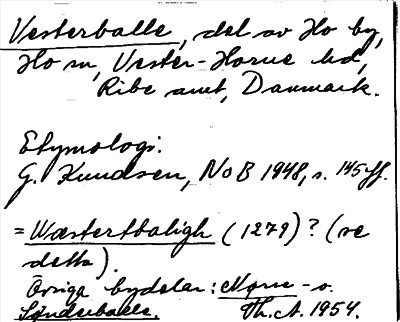 Vesterballe, del av Ho by,
Ho sn, Vester-Horne hd,
Ribe amt, Danmark.
Etymologi:
G. Knudsen, NoB 1948, s. 145ff.
= Wæstertbaligh (1279)? (se
detta).
Övriga bydelar: Nørre- o.
Sønderballe. Th. A. 1954.